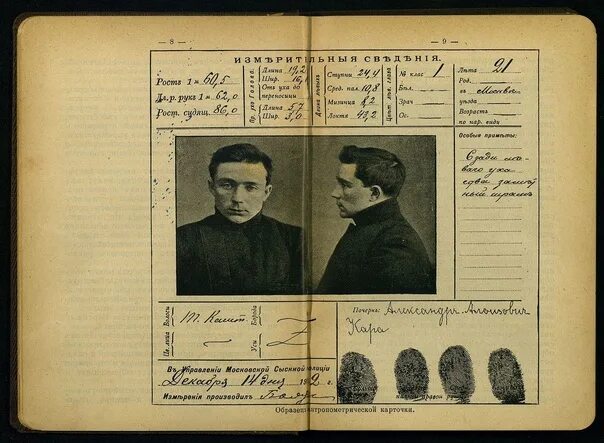 — 8 —
— 9 —
ИЗМѢРИТЕЛЬНЫЯ СВѢДѢНІЯ.
Ростъ 1 м 60,5
Дл. р. рукъ 1 м 62,0
Рост. сидящ. 86,0
Длина 19,2
Шир. 16,
Отъ уха до переносицы
Длина 5,7
Шир. 3,0
Ступни 24,4
Сред. пал. 10,8
Мизинца 8,2
Локтя 40,2
№ клас. 1
Зрач
Ос.
Лѣта 21
Род.
въ Москвѣ
уѣзда
Возрастъ
по нар. виду
Особыя примѣты:
Сзади
ваго уха
замѣт
ный шрамъ
Волосы
Т. Кашт.
Борода
Усы
Почеркъ: Александръ Алоизовичъ
Кара
Въ Управленіи Московской Сыскной Полиціи
Декабря 14 дня г.
Измѣренія производилъ
Образецъ антропометрической карточки.